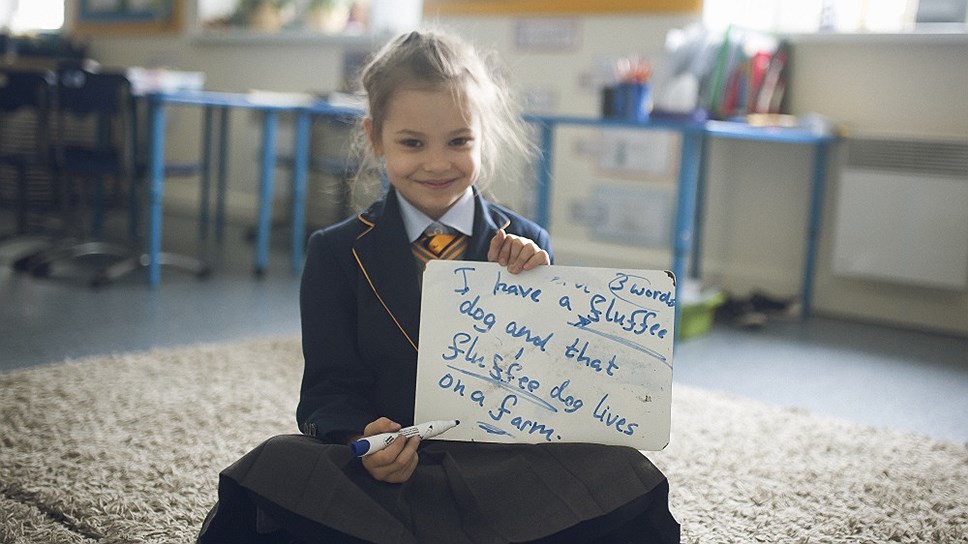 3 words
I have a fluffee
dog and that
fluffee dog lives
on a farm.